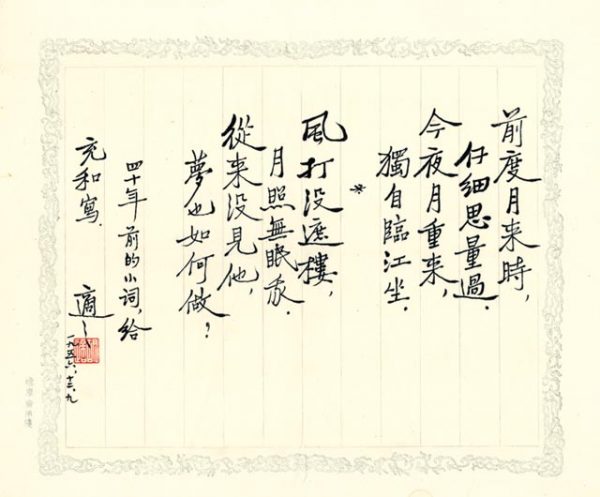 前度月来時，
仔細思量過．
今夜月重来，
獨自臨江坐．
*
風打没遮樓，
月照無眠我．
從来没見他，
夢也如何做？
四十年前的小詞，給
充和寫． 適之
一九五六．十二．九